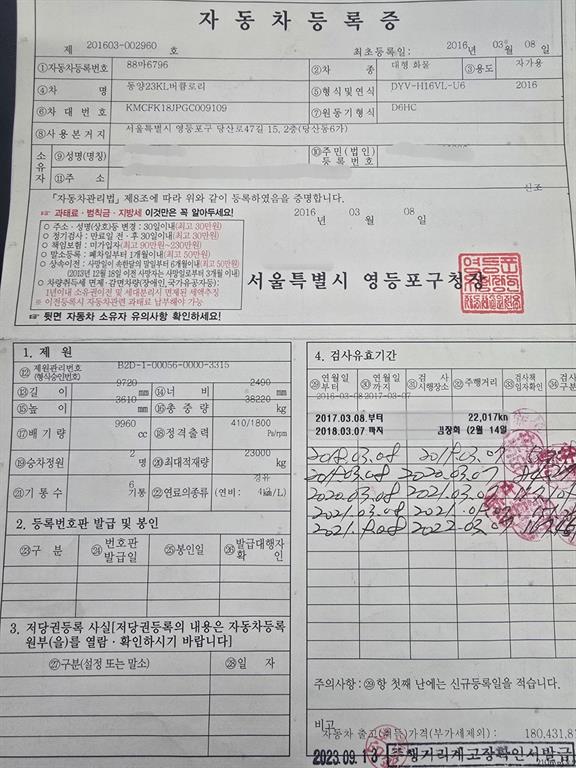 자동차등록증
제 201603-002960 호
최초등록일: 2016 년 03월 08 일
①자동차등록번호 88마6796 ②차 종 대형 화물 ③용도 자가용
④차 명 동양23KL버큘로리 ⑤형식및연식 DYV-H16VL-U6 2016
⑥차대번호 KMCFK18JPGC009109 ⑦원동기형식 D6HC
⑧사용본거지 서울특별시 영등포구 당산로47길 15, 2층(당산동6가)
소유자 ⑨성명(명칭) ⑩주민(법인)등록번호
⑪주소
신조
「자동차관리법」 제8조에 따라 위와 같이 등록하였음을 증명합니다.
☞ 과태료·범칙금·지방세 이것만은 꼭 알아두세요!
2016 년 03 월 08 일
○ 주소·성명(상호)등 변경 : 30일이내(최고 30만원)
○ 정기검사 : 만료일 전·후 30일이내(최고 30만원)
○ 책임보험 : 미가입자(최고 90만원~230만원)
○ 말소등록 : 폐차일부터 1개월이내(최고 50만원)
○ 상속이전 : 사망일이 속한달의 말일부터 6개월이내(최고 50만원)
(2013년 12월 18일 이전 사망자는 사망일로부터 3개월 이내)
○ 차량취득세 면제·감면차량(장애인,국가유공자등):
1년이내 소유권이전 및 세대분리시 면제된 세액추징
※ 이전등록시 자동차관련 과태료 납부해야 가능
서울특별시 영등포구청장
☞ 뒷면 자동차 소유자 유의사항 확인하세요!
1. 제 원
⑫제원관리번호(형식승인번호) B2D-1-00056-0000-3315
⑬길 이 9720 mm ⑭너 비 2490 mm
⑮높 이 3610 mm ⑯총 중 량 38220 kg
⑰배 기 량 9960 cc ⑱정격출력 410/1800 Ps/rpm
⑲승차정원 2 명 ⑳최대적재량 23000 kg
㉑기 통 수 6 기통 ㉒연료의종류 경유 (연비: 4 km/L)
2. 등록번호판 발급 및 봉인
㉓구 분 ㉔번호판발급일 ㉕봉인일 ㉖발급대행자확 인
3. 저당권등록 사실[저당권등록의 내용은 자동차등록
원부(을)를 열람·확인하시기 바랍니다]
㉗구분(설정 또는 말소) ㉘일 자
4. 검사유효기간
㉙연월일부터 ㉚연월일까지 ㉛검 사시행장소 ㉜주행거리 ㉝검사책임자확인 ㉞검사구분
2016-03-08 2017-03-07
2017.03.08.부터 22,017km
2018.03.07 까지 김장희 (2월 14일
2018.03.08 2019.03.07
2019.03.08 2020.03.07
2020.03.08 2021.03.07
2022.03.07
주의사항: ㉙항 첫째 난에는 신규등록일을 적습니다.
비고
자동차 출고(취득)가격(부가세제외): 180,431,8
2023.09.13 주행거리계고장확인서발급